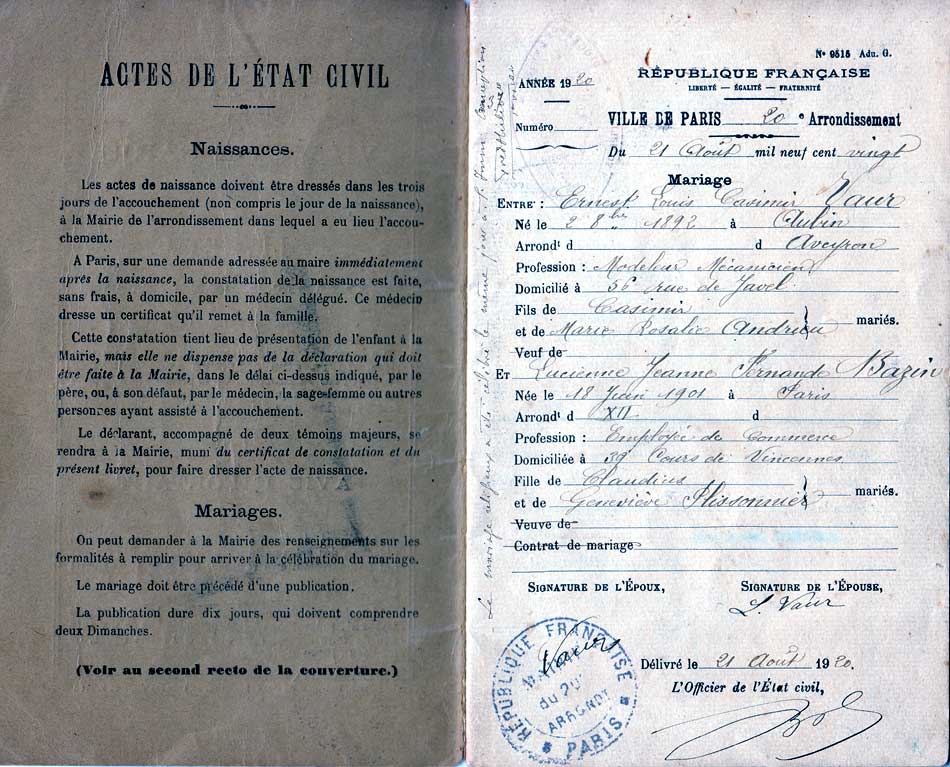 ACTES DE L'ÉTAT CIVIL
Naissances.
Les actes de naissance doivent être dressés dans les trois
jours de l'accouchement (non compris le jour de la naissance),
à la Mairie de l'arrondissement dans lequel a eu lieu l'accou-
chement.
A Paris, sur une demande adressée au maire immédiatement
après la naissance, la constatation de la naissance est faite,
sans frais, à domicile, par un médecin délégué. Ce médecin
dresse un certificat qu'il remet à la famille.
Cette constatation tient lieu de présentation de l'enfant à la
Mairie, mais elle ne dispense pas de la déclaration qui doit
être faite à la Mairie, dans le délai ci-dessus indiqué, par le
père, ou, à son défaut, par le médecin, la sage-femme ou autres
personnes ayant assisté à l'accouchement.
Le déclarant, accompagné de deux témoins majeurs, se
rendra à la Mairie, muni du certificat de constatation et du
présent livret, pour faire dresser l'acte de naissance.
Mariages.
On peut demander à la Mairie des renseignements sur les
formalités à remplir pour arriver à la célébration du mariage.
Le mariage doit être précédé d'une publication.
La publication dure dix jours, qui doivent comprendre
deux Dimanches.
(Voir au second recto de la couverture.)
Le mariage religieux a été célébré le même jour à
N° 9515 Adu. G.
ANNÉE 1920
RÉPUBLIQUE FRANÇAISE
LIBERTÉ — ÉGALITÉ — FRATERNITÉ
Numéro
VILLE DE PARIS 20 e Arrondissement
Du 21 Août mil neuf cent vingt
Mariage
ENTRE : Ernest Louis Casimir Vaur
Né le 2 8bre 1892 à Aubin
Arrondt d d Aveyron
Profession : Modeleur Mécanicien
Domicilié à 56 rue de Javel
Fils de Casimir
et de Marie Rosalie Andrieu mariés.
Veuf de
ET Lucienne Jeanne Fernande Bazin
Née le 18 Juin 1901 à Paris
Arrondt d XII d
Profession : Employée de Commerce
Domiciliée à 39 Cours de Vincennes
Fille de Claudius
et de Geneviève Plissonnier mariés.
Veuve de
Contrat de mariage
SIGNATURE DE L'ÉPOUX, SIGNATURE DE L'ÉPOUSE,
Vaur
L. Vaur
RÉPUBLIQUE FRANÇAISE
MAIRIE
du 20e
ARRONDT
PARIS
Délivré le 21 Août 1920.
L'Officier de l'État civil,